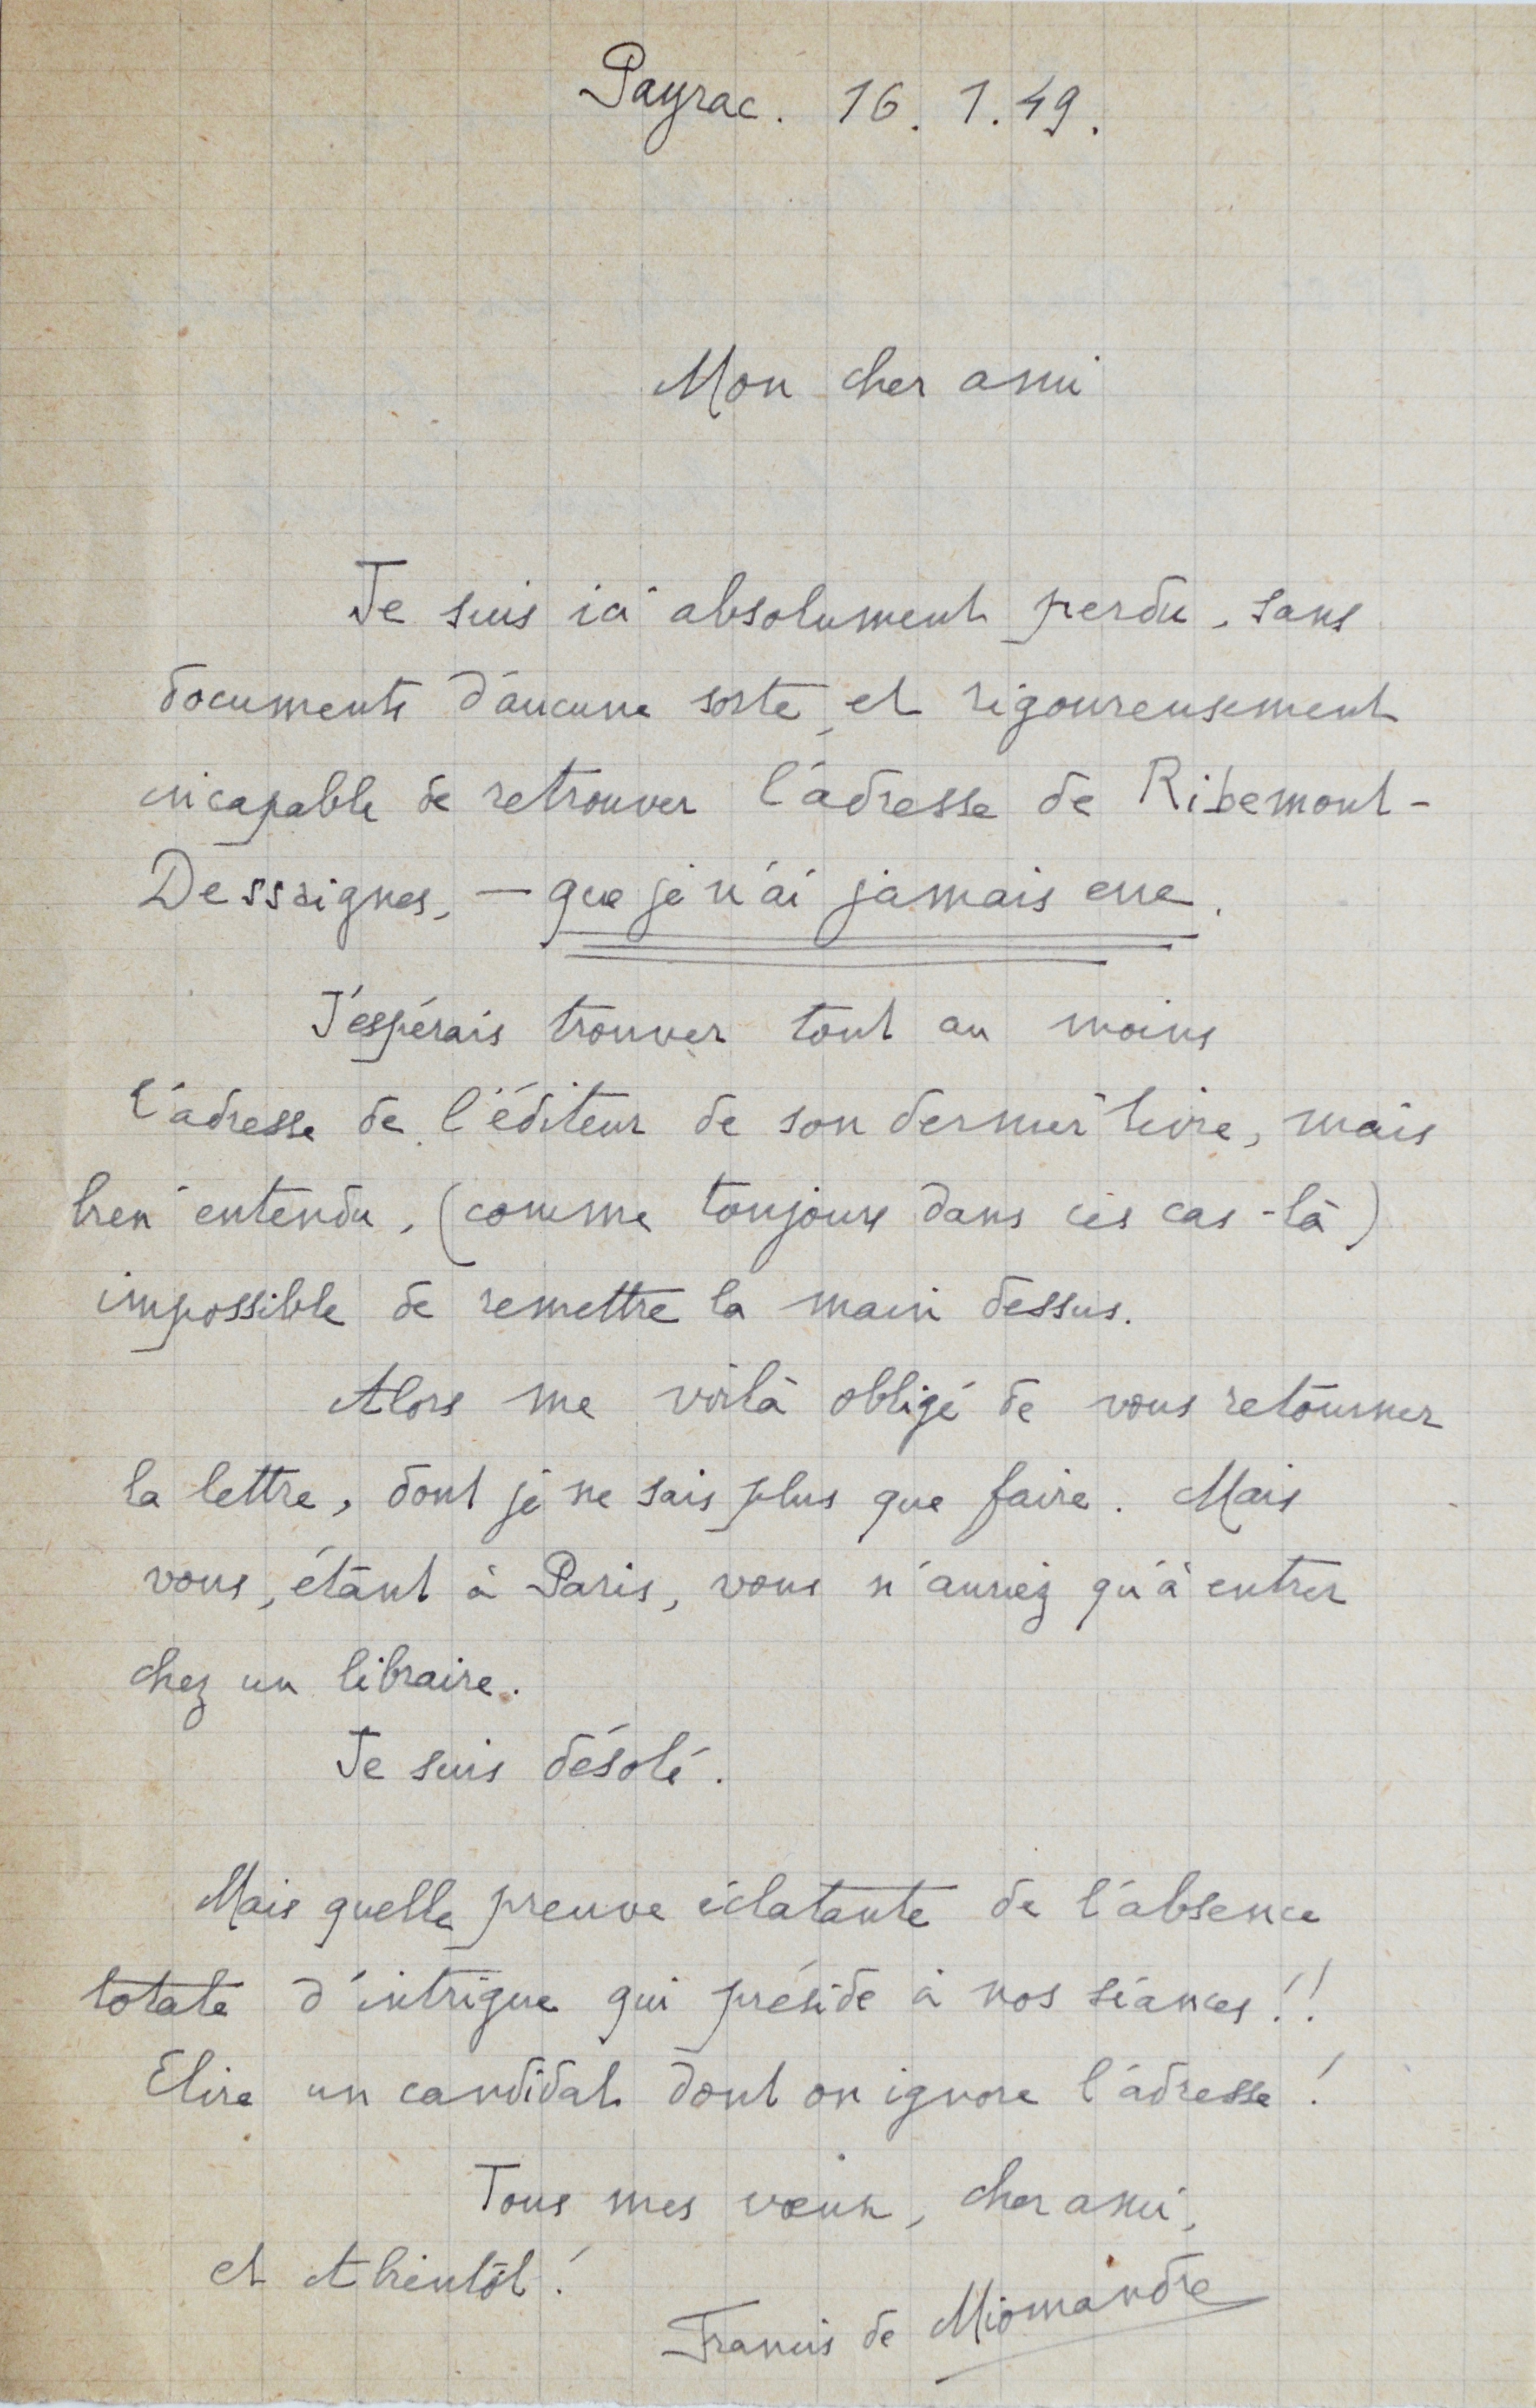 Payrac. 16. 1. 49.
Mon cher ami
Je suis ici absolument perdu, sans
documents d'aucune sorte, et rigoureusement
incapable de retrouver l'adresse de Ribemont-
Dessaignes, — que je n'ai jamais eue.
J'espérais trouver tout au moins
l'adresse de l'éditeur de son dernier livre, mais
bien entendu, (comme toujours dans ces cas-là)
impossible de remettre la main dessus.
Alors me voilà obligé de vous retourner
la lettre, dont je ne sais plus que faire. Mais
vous, étant à Paris, vous n'auriez qu'à entrer
chez un libraire.
Je suis désolé.
Mais quelle preuve éclatante de l'absence
totale d'intrigue qui préside à nos séances!!
Elire un candidat dont on ignore l'adresse!
Tous mes vœux, cher ami,
et A bientôt!
Francis de Miomandre